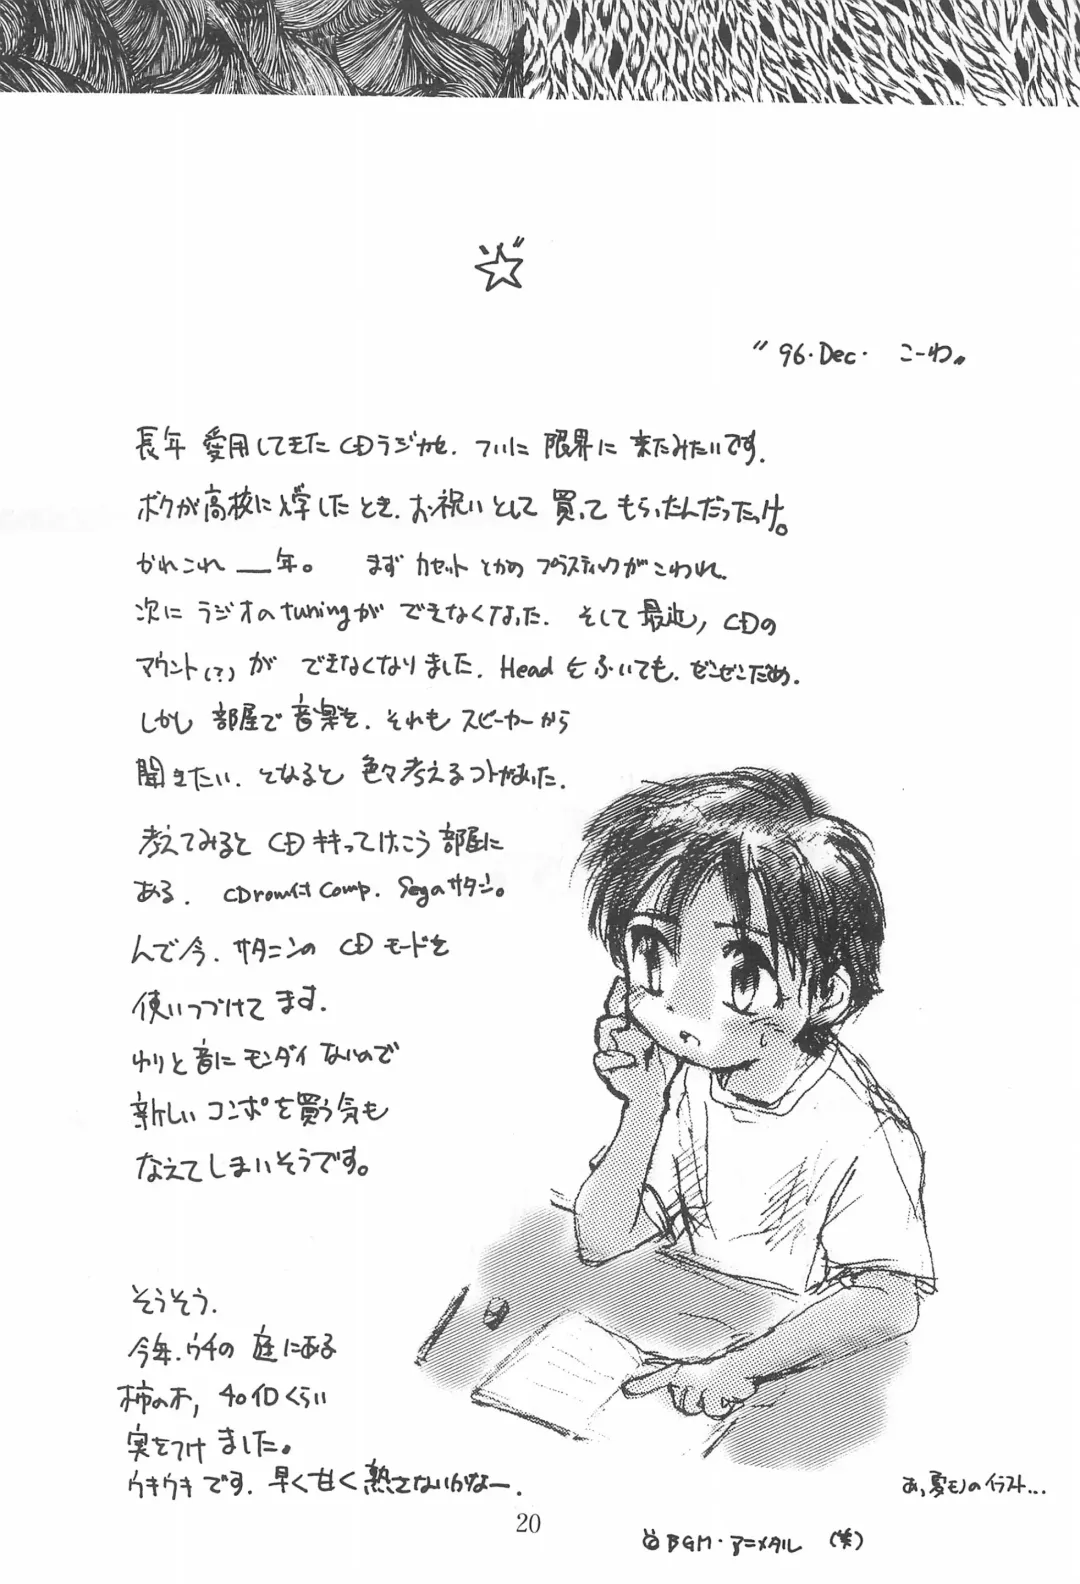 "96.Dec. こーわ"
長年 愛用してきた CDラジカセ. ついに 限界に 来たみたいです.
ボクが高校に入学したとき. お祝いとして 買って もらったんだったっけ。
かれこれ __年。 まず カセット とかの プラスティックがこわれ.
次に ラジオのtuningが できなくなった. そして 最近, CDの
マウント(?)が できなくなりました. Head をふいても. ぜんぜんだめ.
しかし 部屋で 音楽を. それも スピーカーから
聞きたい. となると 色々考えるコトがあった.
考えてみると CDききって けっこう 部屋に
ある. CDrom付 Comp. Segaサターン。
んで今. サターンの CDモードを
使いつづけてます.
わりと音にモンダイ ないので
新しい コンポを買う気も
なえてしまいそうです。
そうそう.
今年.ウチの 庭にある
柿の木, 40個くらい
実をつけました。
ウキウキです. 早く甘く熟さないかなー.
あ,夏モノのイラスト...
20
BGM・アニメタル (笑)